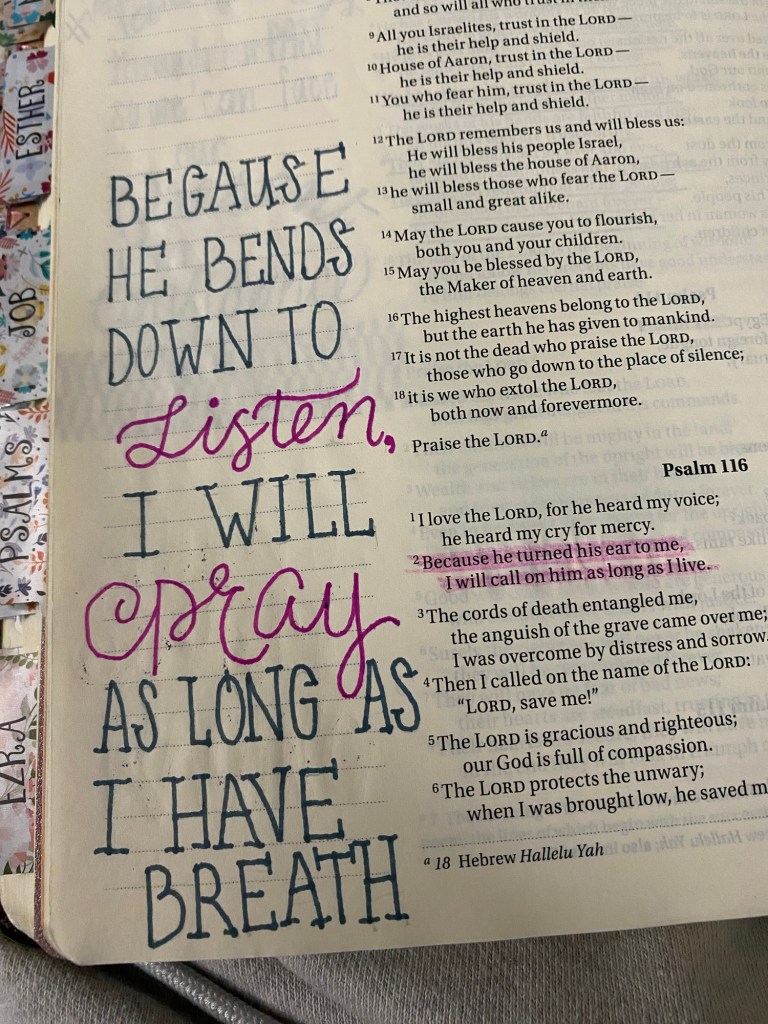 ESTHER
JOB
PSALMS
EZRA
BEGAUSE
HE BENDS
DOWN TO
Listen,
I WILL
pray
AS LONG AS
I HAVE
BREATH
and so will all who trust in
⁹All you Israelites, trust in the LORD—
he is their help and shield.
¹⁰House of Aaron, trust in the LORD—
he is their help and shield.
¹¹You who fear him, trust in the LORD—
he is their help and shield.
¹²The LORD remembers us and will bless us:
He will bless his people Israel,
he will bless the house of Aaron,
¹³he will bless those who fear the LORD—
small and great alike.
¹⁴May the LORD cause you to flourish,
both you and your children.
¹⁵May you be blessed by the LORD,
the Maker of heaven and earth.
¹⁶The highest heavens belong to the LORD,
but the earth he has given to mankind.
¹⁷It is not the dead who praise the LORD,
those who go down to the place of silence;
¹⁸it is we who extol the LORD,
both now and forevermore.
Praise the LORD.ᵃ
Psalm 116
¹I love the LORD, for he heard my voice;
he heard my cry for mercy.
²Because he turned his ear to me,
I will call on him as long as I live.
³The cords of death entangled me,
the anguish of the grave came over me;
I was overcome by distress and sorrow.
⁴Then I called on the name of the LORD:
“LORD, save me!”
⁵The LORD is gracious and righteous;
our God is full of compassion.
⁶The LORD protects the unwary;
when I was brought low, he saved
ᵃ 18 Hebrew Hallelu Yah